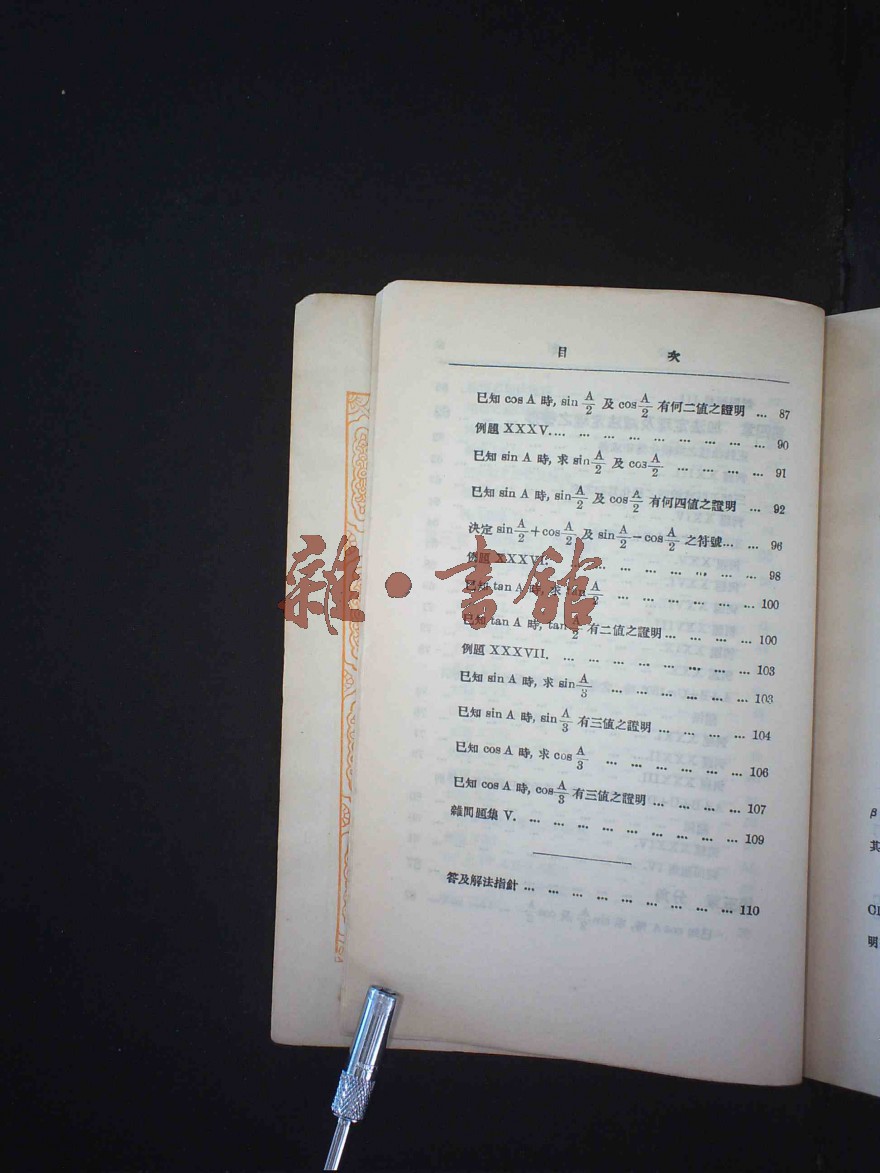 目 次
已知 cos A 時, sin A/2 及 cos A/2 有何二值之證明 … 87
例題 XXXV. … … … … … … … … … 90
已知 sin A 時, 求 sin A/2 及 cos A/2 … … … … 91
已知 sin A 時, sin A/2 及 cos A/2 有何四值之證明 … 92
決定 sin A/2 + cos A/2 及 sin A/2 − cos A/2 之符號 … … 96
例題 XXXVI. … … … … … … … 98
已知 tan A 時, 求 tan A/2 … … … … … … 100
已知 tan A 時, tan A/2 有二值之證明 … … … … 100
例題 XXXVII. … … … … … … … … 103
已知 sin A 時, 求 sin A/3 … … … … … … 103
已知 sin A 時, sin A/3 有三值之證明 … … … … 104
已知 cos A 時, 求 cos A/3 … … … … … … 106
已知 cos A 時, cos A/3 有三值之證明 … … … … 107
雜問題集 V. … … … … … … … … … 109
答及解法指針 … … … … … … … … … 110
雜·書館
β
其
明